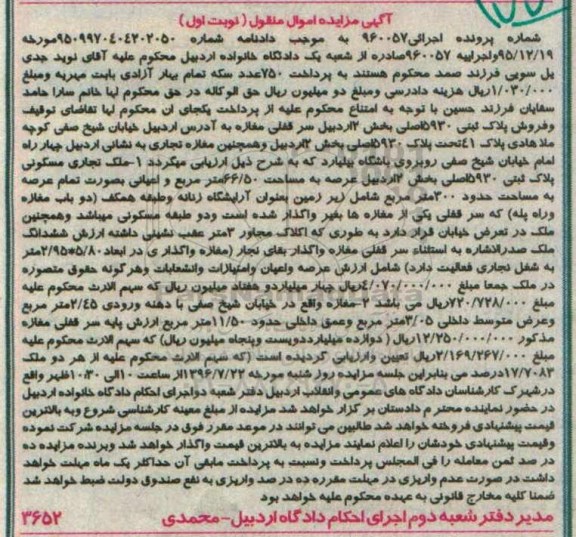 آگهی مزایده اموال منقول ( نوبت اول )
شماره پرونده اجرائی ۹۶۰۰۵۷ به موجب دادنامه شماره ۹۵۰۹۹۷۰۴۰۴۲۰۲۰۵۰مورخه
۹۵/۱۲/۱۹واجراییه ۹۶۰۰۵۷صادره از شعبه یک دادگاه خانواده اردبیل محکوم علیه آقای نوید جدی
یل سویی فرزند صمد محکوم هستند به پرداخت ۷۵۰عدد سکه تمام بهار آزادی بابت مهریه ومبلغ
۱/۰۳۰/۰۰۰ریال هزینه دادرسی ومبلغ دو میلیون ریال حق الوکاله در حق محکوم لها خانم سارا حامد
سقایان فرزند حسین با توجه به امتناع محکوم علیه از پرداخت یکجای ان محکوم لها تقاضای توقیف
وفروش پلاک ثبتی ۵۹۳۰اصلی بخش ۲اردبیل سر قفلی مغازه به آدرس اردبیل خیابان شیخ صفی کوچه
ملاهادی پلاک ۴۱تحت پلاک ۵۹۳۰اصلی بخش ۲اردبیل وهمچنین مغازه تجاری به نشانی اردبیل چهار راه
امام خیابان شیخ صفی روبروی باشگاه بیلیارد که به شرح ذیل ارزیابی میگردد ۱-ملک تجاری مسکونی
پلاک ثبتی ۵۹۳۰اصلی بخش ۲اردبیل عرصه به مساحت ۶۶/۵۰متر مربع و اعیانی بصورت تمام عرصه
به مساحت حدود ۳۰۰متر مربع شامل زیر زمین بعنوان آرایشگاه زنانه وطبقه همکف (دو باب مغازه
وراه پله) که سر قفلی یکی از مغازه ها بغیر واگذار شده است ودو طبقه مسکونی میباشد وهمچنین
ملک در تعرض خیابان قرار دارد به طوری که املاک مجاور ۳متر عقب نشینی داشته ارزش ششدانگ
ملک صدرالاشاره به استثناء سر قفلی مغازه واگذار بقای نجار (مغازه واگذار ی در ابعاد۵/۸۰*۲/۹۵متر
به شغل نجاری فعالیت دارد) شامل ارزش عرصه واعیان وامتیازات وانشعابات وهرگونه حقوق متصوره
در ملک جمعا مبلغ ۴/۰۷۰/۰۰۰/۰۰۰ریال چهار میلیاردو هفتاد میلیون ریال که سهم الارث محکوم علیه
مبلغ ۷۲۰/۷۲۸/۰۰۰ریال می باشد ۲-مغازه واقع در خیابان شیخ صفی با دهنه ورودی ۲/۴۵متر مربع
وعرض متوسط داخلی ۳/۰۵متر مربع وعمق داخلی حدود ۱۱/۵۰متر مربع ارزش پایه سر قفلی مغازه
مذکور ۱۲/۲۵۰/۰۰۰/۰۰۰ریال ( دوازده میلیارددویست وپنجاه میلیون ریال) که سهم الارث محکوم علیه
مبلغ ۲/۱۶۹/۲۶۷/۰۰۰ریال تعیین وارزیابی گردیده است (که سهم الارث محکوم علیه از هر دو ملک
۱۷/۷۰۸۳درصد می بنابراین جلسه مزایده روز شنبه مورخه ۱۳۹۶/۷/۲۲از ساعت ۱۰الی ۱۰:۳۰ظهر واقع
درشهرک کارشناسان دادگاه های عمومی وانقلاب اردبیل دفتر شعبه دواجرای احکام دادگاه خانواده اردبیل
در حضور نماینده محتر م دادستان بر گزار خواهد شد مزایده از مبلغ معینه کارشناسی شروع وبه بالاترین
قیمت پیشنهادی فروخته خواهد شد طالبین می توانند در موعد مقرر فوق در جلسه مزایده شرکت نموده
وقیمت پیشنهادی خودشان را اعلام نمایند مزایده به بالاترین قیمت واگذار خواهد شد وبرنده مزایده ده
در صد ثمن معامله را فی المجلس پرداخت ونسبت به پرداخت مابقی آن حداکثر یک ماه مهلت خواهد
داشت در صورت عدم واریزی در مهلت مقرره ده در صد واریزی به نفع صندوق دولت ضبط خواهد شد
ضمنا کلیه مخارج قانونی به عهده محکوم علیه خواهد بود
مدیر دفتر شعبه دوم اجرای احکام دادگاه اردبیل-محمدی ۳۶۵۲